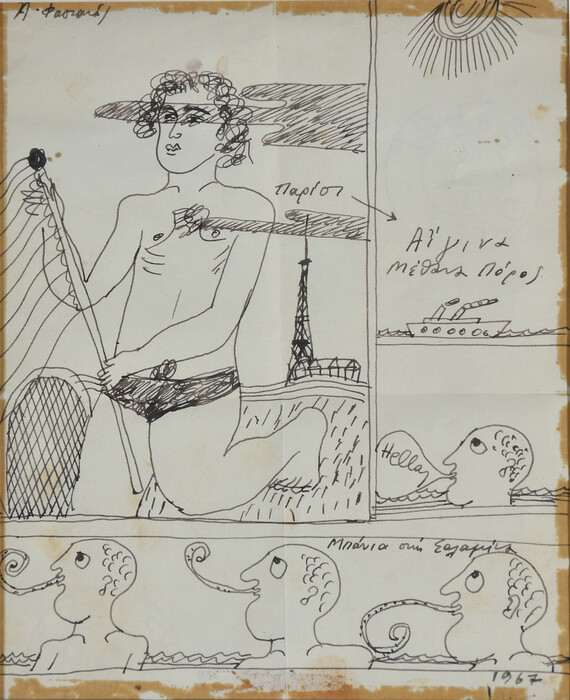 Α. Φασιανός
Παρίσι
Αίγινα
Μέθανα Πόρος
Hellas
Μπάνια στη Σαλαμίνα
1967